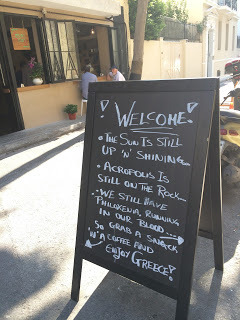 ! WELCOME !
• THE SUN IS STILL
UP 'N' SHINING...
• ACROPOLIS IS
STILL ON THE ROCK...
• WE STILL HAVE
PHILOXENIA RUNNING
IN OUR BLOOD...
SO GRAB A SNACK
'N' A COFFEE AND
ENJOY GREECE!